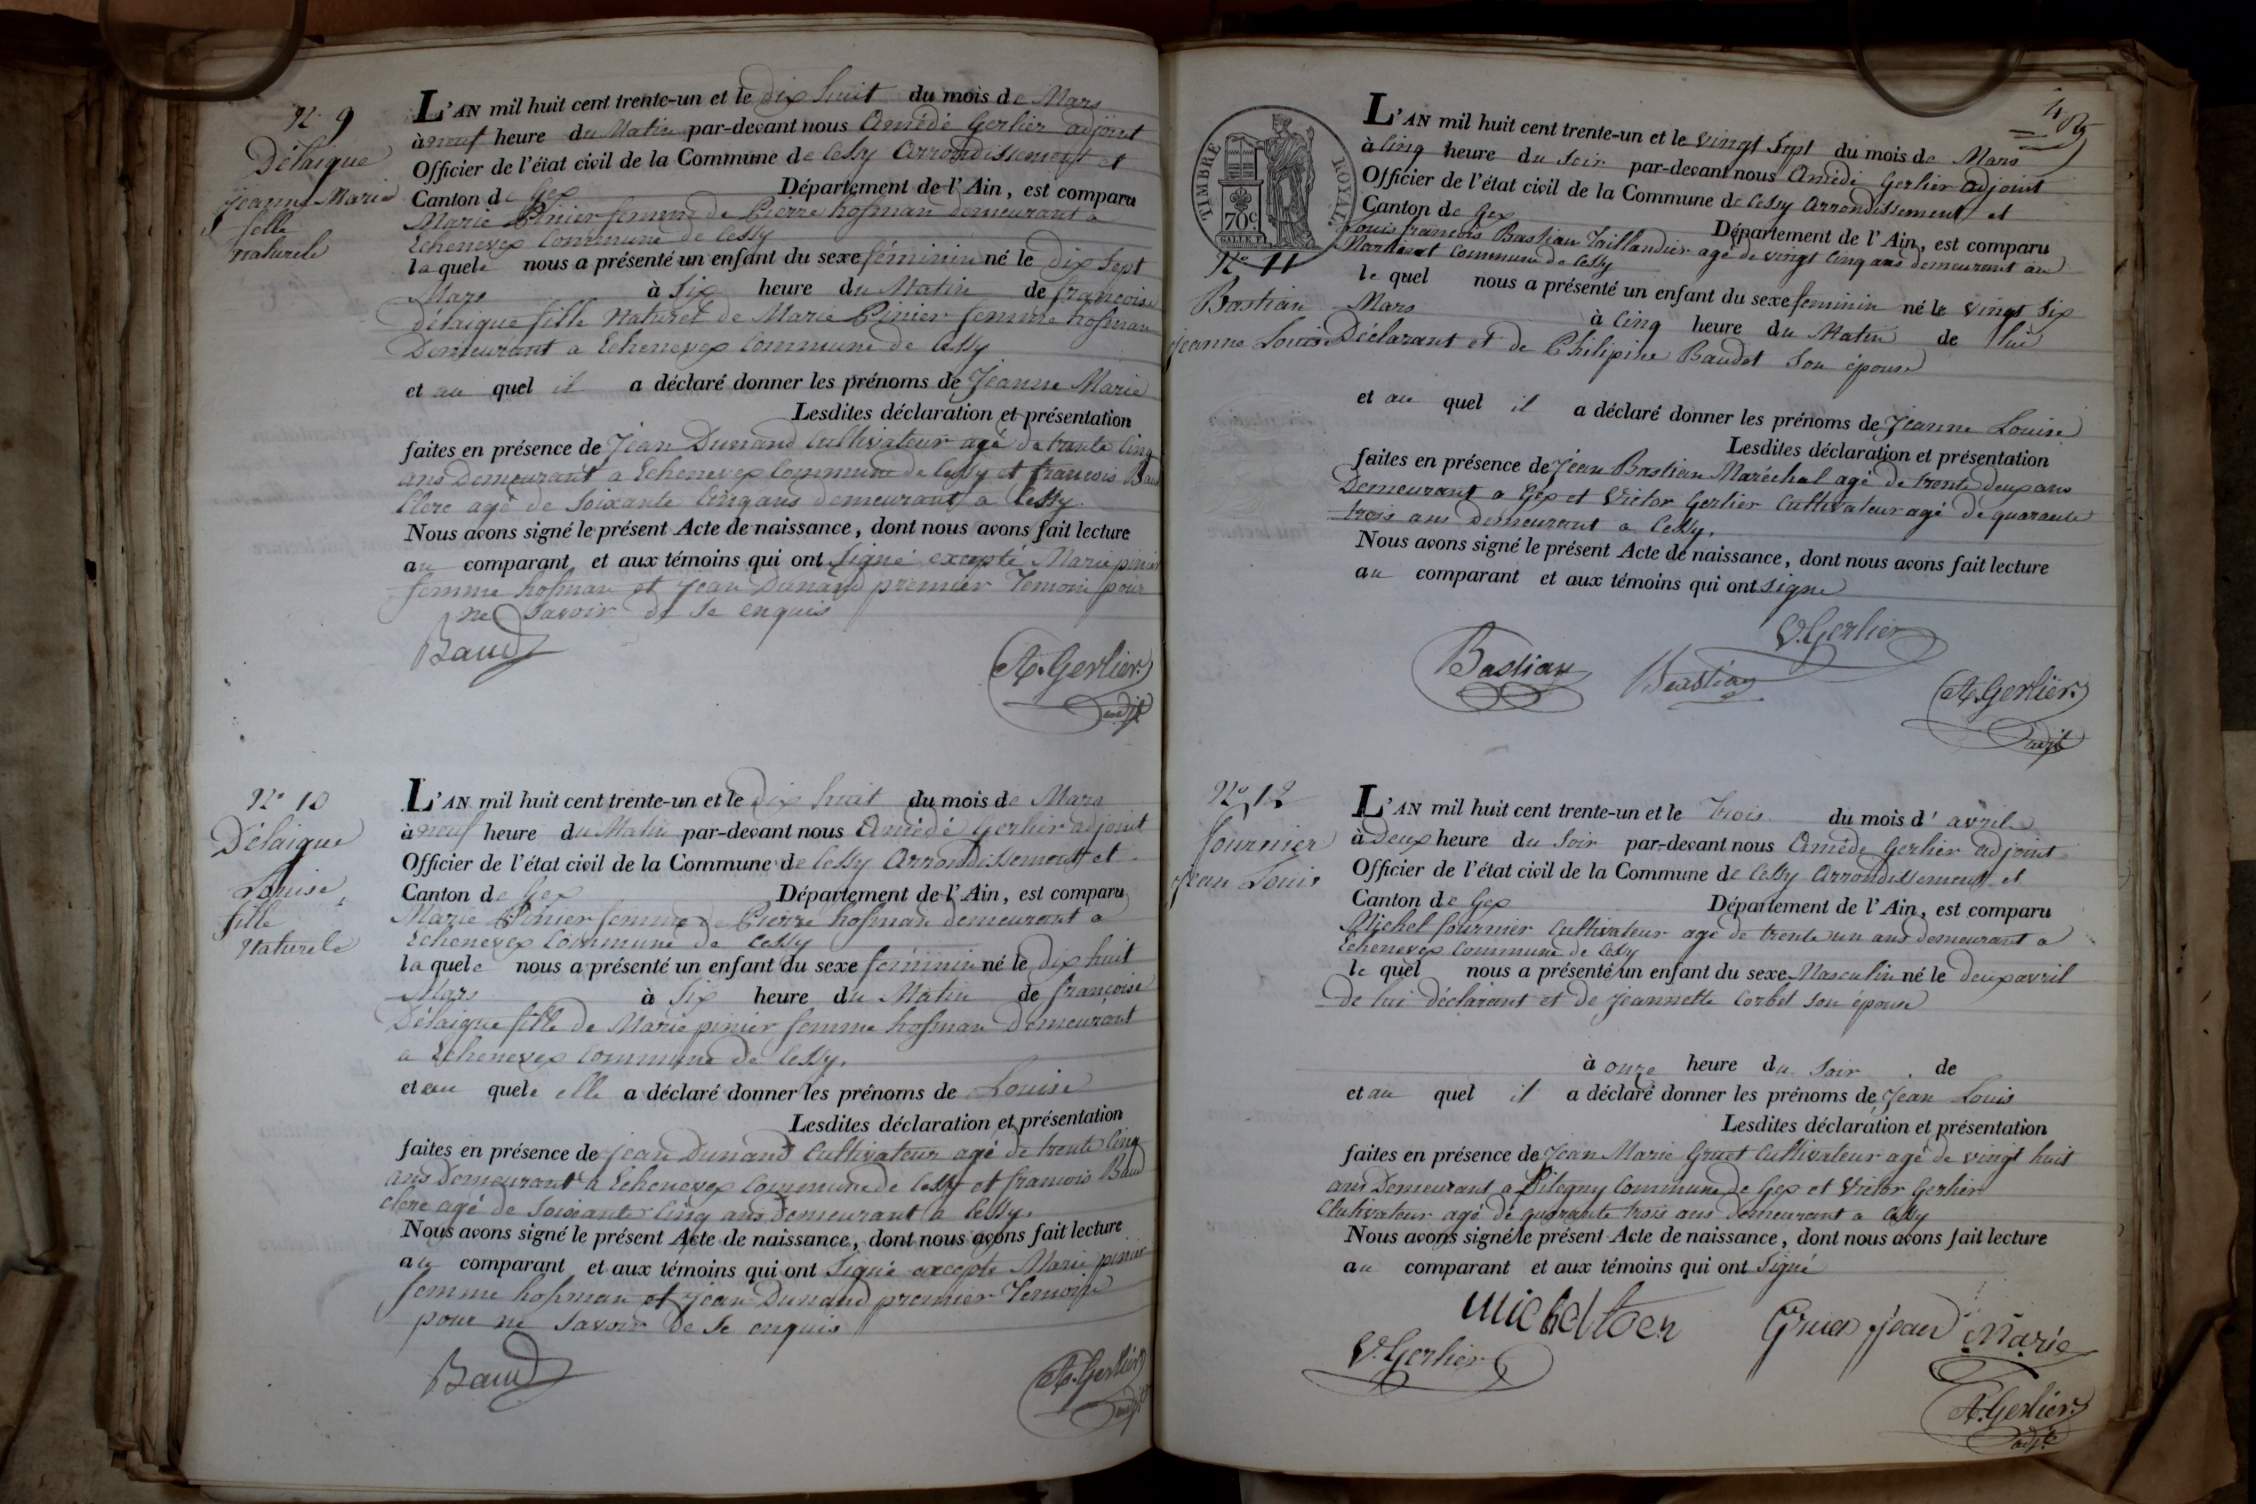 N° 9
Délaique
Jeanne Marie
fille
naturele
L'AN mil huit cent trente-un et le dix huit du mois de Mars
à neuf heure du Matin par-devant nous Amédé Gerlier adjoint
Officier de l'état civil de la Commune de Cessy Arrondissement et
Canton de Gex Département de l'Ain, est comparu
Marie Pinier femme de Pierre hofman demeurant a
Echenevex Commune de Cessy
laquele nous a présenté un enfant du sexe féminin né le dix sept
Mars à Six heure du Matin de françoise
Délaique fille Naturel de Marie Pinier femme hofman
Demeurant a Echenevex Commune de Cessy
et au quel il a déclaré donner les prénoms de Jeanne Marie
Lesdites déclaration et présentation
faites en présence de Jean Dunand Cultivateur agé de trente Cinq
ans Demeurant a Echenevex Commune de Cessy et francois Baud
Clerc agé de Soixante Cinq ans demeurant a Cessy
Nous avons signé le présent Acte de naissance, dont nous avons fait lecture
au comparant et aux témoins qui ont Signé excepté Marie pinier
femme hofman et Jean Dunand premier Temoin pour
ne Savoir de Se enquis
Baud
A. Gerlier
adjt
N° 10
Délaique
Louise
fille
Naturele
L'AN mil huit cent trente-un et le dix huit du mois de Mars
à neuf heure du Matin par-devant nous Amédé Gerlier adjoint
Officier de l'état civil de la Commune de Cessy Arrondissement et
Canton de Gex Département de l'Ain, est comparu
Marie Pinier femme de Pierre hofman demeurant a
Echenevex Commune de Cessy
laquele nous a présenté un enfant du sexe féminin né le dix huit
Mars à Six heure du Matin de françoise
Délaique fille de Marie pinier femme hofman Demeurant
a Echenevex Commune de Cessy.
et au quele elle a déclaré donner les prénoms de Louise
Lesdites déclaration et présentation
faites en présence de Jean Dunand Cultivateur agé de trente Cinq
ans Demeurant a Echenevex Commune de Cessy et francois Baud
clerc agé de Soixante Cinq ans Demeurant a Cessy.
Nous avons signé le présent Acte de naissance, dont nous avons fait lecture
au comparant et aux témoins qui ont Signé excepte Marie pinier
femme hofman et Jean Dunand premier Temoin
pour ne Savoir de Se enquis
Baud
A. Gerlier
TIMBRE ROYAL
70c.
N° 11
Bastian
Jeanne Louise
L'AN mil huit cent trente-un et le vingt Sept du mois de Mars
à Cinq heure du Soir par-devant nous Amédé Gerlier adjoint
Officier de l'état civil de la Commune de Cessy Arrondissement et
Canton de Gex Département de l'Ain, est comparu
Louis francois Bastian Taillandier agé de vingt Cinq ans demeurant au
Martinet Commune de Cessy
le quel nous a présenté un enfant du sexe feminin né le vingt Six
Mars à Cinq heure du Matin de lui
Déclarant et de Philipine Baudet Son épouse
et au quel il a déclaré donner les prénoms de Jeanne Louise
Lesdites déclaration et présentation
faites en présence de Jean Bastian Maréchal agé de trente deux ans
Demeurant a Gex et Victor Gerlier Cultivateur agé de quarante
trois ans Demeurant a Cessy.
Nous avons signé le présent Acte de naissance, dont nous avons fait lecture
au comparant et aux témoins qui ont Signe
V. Gerlier
Bastian
Bastian
A. Gerlier
adjt
N° 12
fournier
Jean Louis
L'AN mil huit cent trente-un et le Trois du mois d'avril
à Deux heure du Soir par-devant nous Amédé Gerlier adjoint
Officier de l'état civil de la Commune de Cessy Arrondissement et
Canton de Gex Département de l'Ain, est comparu
Michel fournier Cultivateur agé de trente un ans demeurant a
Echenevex Commune de Cessy
le quel nous a présenté un enfant du sexe Masculin né le deux avril
de lui déclarant et de Jeannette Corbet son épouse
à onze heure du Soir de
et au quel il a déclaré donner les prénoms de Jean Louis
Lesdites déclaration et présentation
faites en présence de Jean Marie Gruet Cultivateur agé de vingt huit
ans Demeurant a Pitegny Commune de Gex et Victor Gerlier
Cultivateur agé de quarante trois ans demeurant a Cessy
Nous avons signé le présent Acte de naissance, dont nous avons fait lecture
au comparant et aux témoins qui ont Signé
Gruet Jean Marie
V. Gerlier
A. Gerlier
adjt